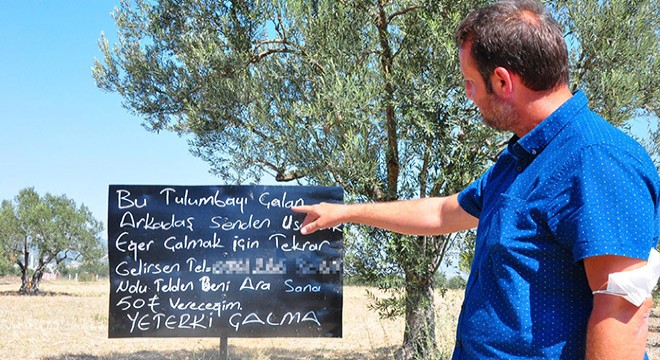 Bu Tulumbayı Çalan
Arkadaş Senden
Eğer Çalmak için Tekrar
Gelirsen Tel=
Nolu Telden Beni Ara Sana
50₺ Vereceğim.
YETERKİ ÇALMA